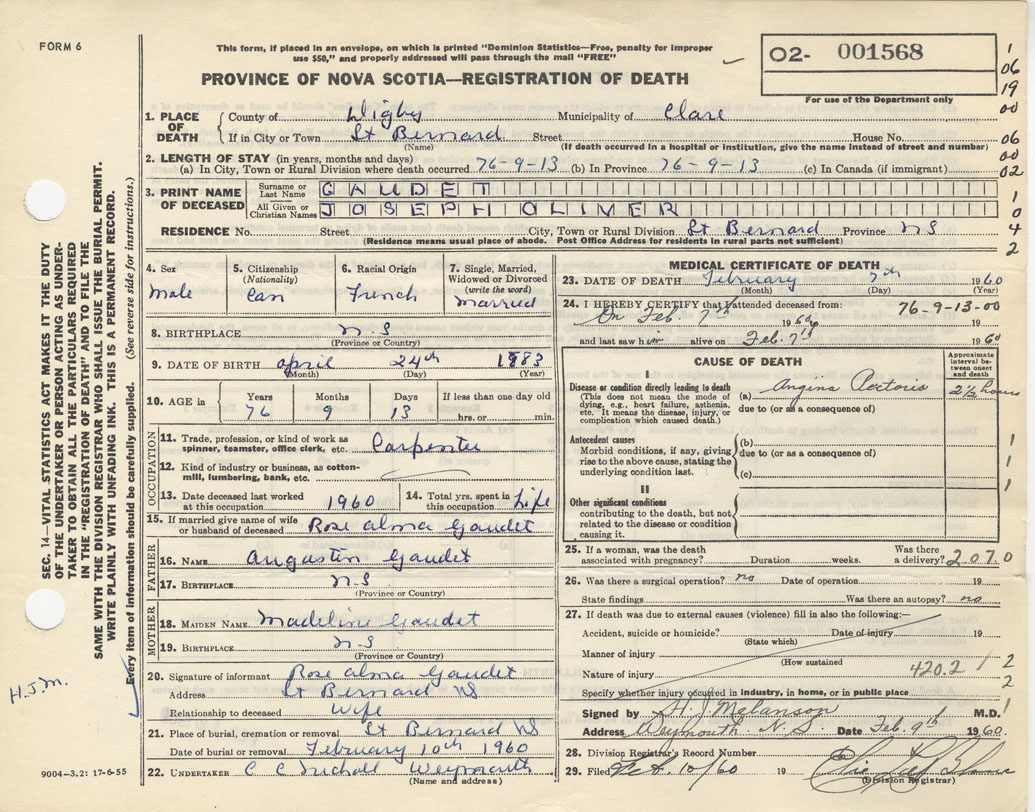 FORM 6
This form, if placed in an envelope, on which is printed "Dominion Statistics—Free, penalty for improper
use $50," and properly addressed will pass through the mail "FREE"
PROVINCE OF NOVA SCOTIA—REGISTRATION OF DEATH
02- 001568
For use of the Department only
1
06
19
00
06
00
02
1
0
4
2
1. PLACE OF DEATH County of Digby Municipality of Clare
If in City or Town St Bernard Street House No.
(Name) (If death occurred in a hospital or institution, give the name instead of street and number)
2. LENGTH OF STAY (in years, months and days)
(a) In City, Town or Rural Division where death occurred 76-9-13 (b) In Province 76-9-13 (c) In Canada (if immigrant)
3. PRINT NAME OF DECEASED Surname or Last Name GAUDET
All Given or Christian Names JOSEPH OLIVER
RESIDENCE No. Street City, Town or Rural Division St Bernard Province NS
(Residence means usual place of abode. Post Office Address for residents in rural parts not sufficient)
4. Sex
Male
5. Citizenship
(Nationality)
Can
6. Racial Origin
French
7. Single, Married,
Widowed or Divorced
(write the word)
Married
8. BIRTHPLACE N.S
(Province or Country)
9. DATE OF BIRTH April 24th 1883
(Month) (Day) (Year)
10. AGE in Years Months Days If less than one day old
76 9 13 hrs. or min.
OCCUPATION
11. Trade, profession, or kind of work as
spinner, teamster, office clerk, etc. Carpenter
12. Kind of industry or business, as cotton-
mill, lumbering, bank, etc.
13. Date deceased last worked
at this occupation 1960
14. Total yrs. spent in
this occupation Life
15. If married give name of wife
or husband of deceased Rose Alma Gaudet
FATHER
16. NAME Augustin Gaudet
17. BIRTHPLACE N.S
(Province or Country)
MOTHER
18. MAIDEN NAME Madeline Gaudet
19. BIRTHPLACE N.S
(Province or Country)
20. Signature of informant Rose Alma Gaudet
Address St Bernard NS
Relationship to deceased Wife
21. Place of burial, cremation or removal St Bernard NS
Date of burial or removal February 10th 1960
22. UNDERTAKER C C Weymouth
(Name and address)
MEDICAL CERTIFICATE OF DEATH
23. DATE OF DEATH February 7th 1960
(Month) (Day) (Year)
24. I HEREBY CERTIFY that I attended deceased from: 76-9-13-00
On Feb. 7th 1960 19
and last saw him alive on Feb. 7th 1960
CAUSE OF DEATH
Approximate
interval between
onset and
death
I
Disease or condition directly leading to death
(This does not mean the mode of
dying, e.g., heart failure, asthenia,
etc. It means the disease, injury, or
complication which caused death.)
(a) Angina Pectoris 2½ hours
due to (or as a consequence of)
Antecedent causes
Morbid conditions, if any, giving
rise to the above cause, stating the
underlying condition last.
(b)
due to (or as a consequence of)
(c)
1
1
1
II
Other significant conditions
contributing to the death, but not
related to the disease or condition
causing it.
25. If a woman, was the death
associated with pregnancy? Duration weeks. Was there
a delivery? 2070
26. Was there a surgical operation? no Date of operation 19
State findings Was there an autopsy? no
27. If death was due to external causes (violence) fill in also the following:—
Accident, suicide or homicide? Date of injury 19
(State which)
Manner of injury
(How sustained
Nature of injury 420.2 1 2
2
Specify whether injury occurred in industry, in home, or in public place
Signed by H. J. Melanson M.D. 1
Address Weymouth N.S. Date Feb 9th 1960.
28. Division Registrar's Record Number
29. Filed Feb. 10/60 19
(Division Registrar)
SEC. 14—VITAL STATISTICS ACT MAKES IT THE DUTY
OF THE UNDERTAKER OR PERSON ACTING AS UNDER-
TAKER TO OBTAIN ALL THE PARTICULARS REQUIRED
IN THE "REGISTRATION OF DEATH" AND TO FILE THE
SAME WITH THE DIVISION REGISTRAR WHO SHALL ISSUE THE BURIAL PERMIT.
WRITE PLAINLY WITH UNFADING INK. THIS IS A PERMANENT RECORD.
Every item of information should be carefully supplied. (See reverse side for instructions.)
H.J.M.
9004-3.2: 17-6-55